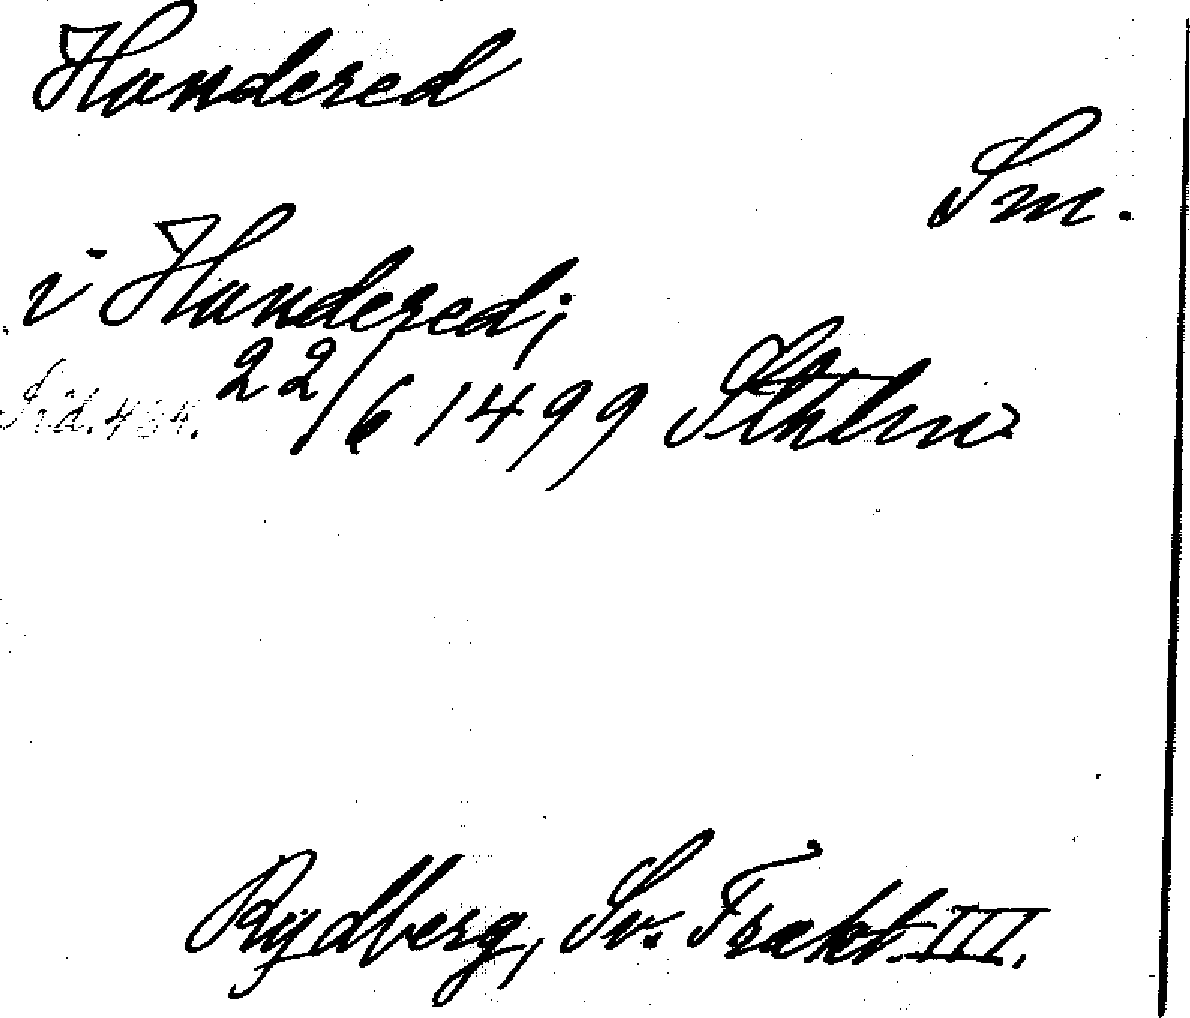 Handered
Sm.
i Handered;
22/6 1499 Sthlm
Rydberg, Sv. Trakt. III.